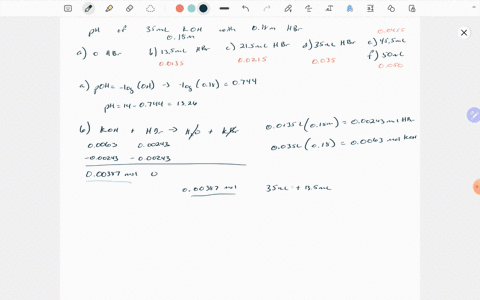 pH of 35mL KOH with 0.18m HBr
0.18m
0.0455
a) 0 HBr b) 13.5mL HBr c) 21.5mL HBr d) 35mL HBr e) 45.5mL
f) 50mL
0.0135 0.0215 0.035
0.050
a) pOH = -log(OH) → -log(0.18) = 0.744
pH = 14 - 0.744 = 13.26
b) KOH + HBr → H₂O + KBr
0.0135L(0.18m) = 0.00243 mol HBr
0.0063 0.00243
0.035L(0.18) = 0.0063 mol KOH
-0.00243 -0.00243
0.00387 mol 0
0.00387 mol 35mL + 13.5mL